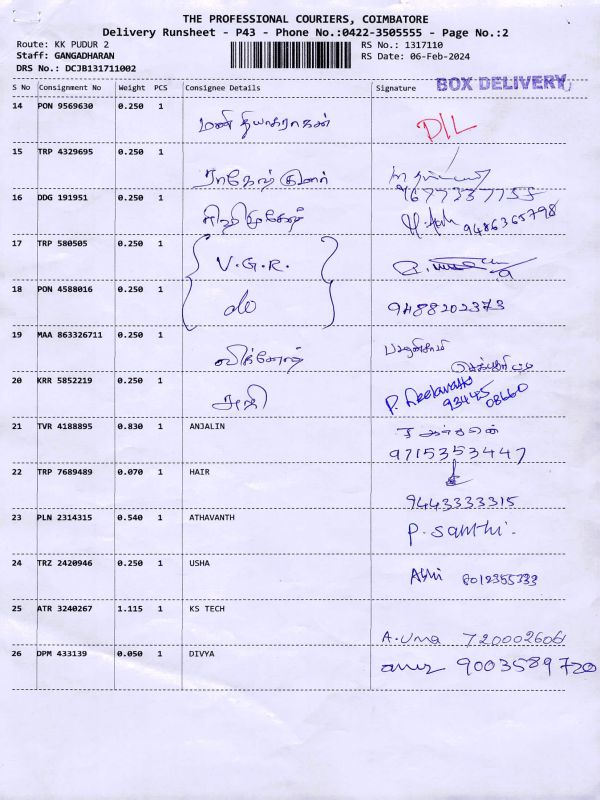 THE PROFESSIONAL COURIERS, COIMBATORE
Delivery Runsheet - P43 - Phone No.:0422-3505555 - Page No.:2
Route: KK PUDUR 2 RS No.: 1317110
Staff: GANGADHARAN RS Date: 06-Feb-2024
DRS No.: DCJB131711002
BOX DELIVERY
S No Consignment No Weight PCS Consignee Details Signature
14 PON 9569630 0.250 1
மணி தியாகராகன் D/L
15 TRP 4329695 0.250 1
ராகேஷ் குமார்
9677337755
16 DDG 191951 0.250 1
9486365798
17 TRP 580505 0.250 1
V.G.R.
18 PON 4588016 0.250 1
do 9488202373
19 MAA 863326711 0.250 1
விக்னேஷ்
20 KRR 5852219 0.250 1
93445
08660
21 TVR 4188895 0.830 1 ANJALIN
9715353447
22 TRP 7689489 0.070 1 HAIR
9443333315
23 PLN 2314315 0.540 1 ATHAVANTH P. Santhi.
24 TRZ 2420946 0.250 1 USHA
Abhi 8012355333
25 ATR 3240267 1.115 1 KS TECH
A.Uma 720002606
26 DPM 433139 0.050 1 DIVYA 9003589720